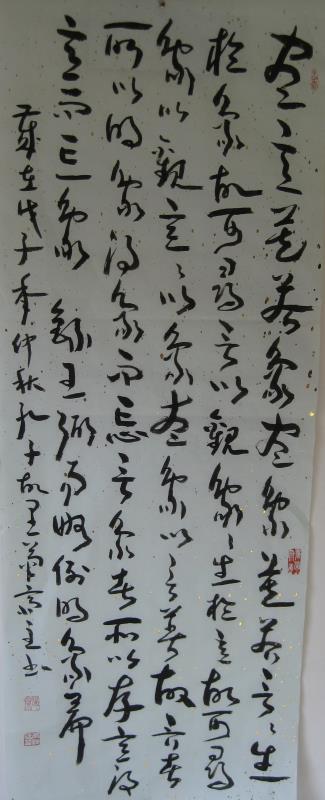 盡意莫若象盡象莫若言々生
於象故可尋言以觀象々生於意故可尋
象以觀意々以象盡象以言著故言者
所以明象得象而忘言象者所以存意得
意而忘象 錄王弼易略例明象篇
歲在戊子秊仲秋孔子故里齋主书